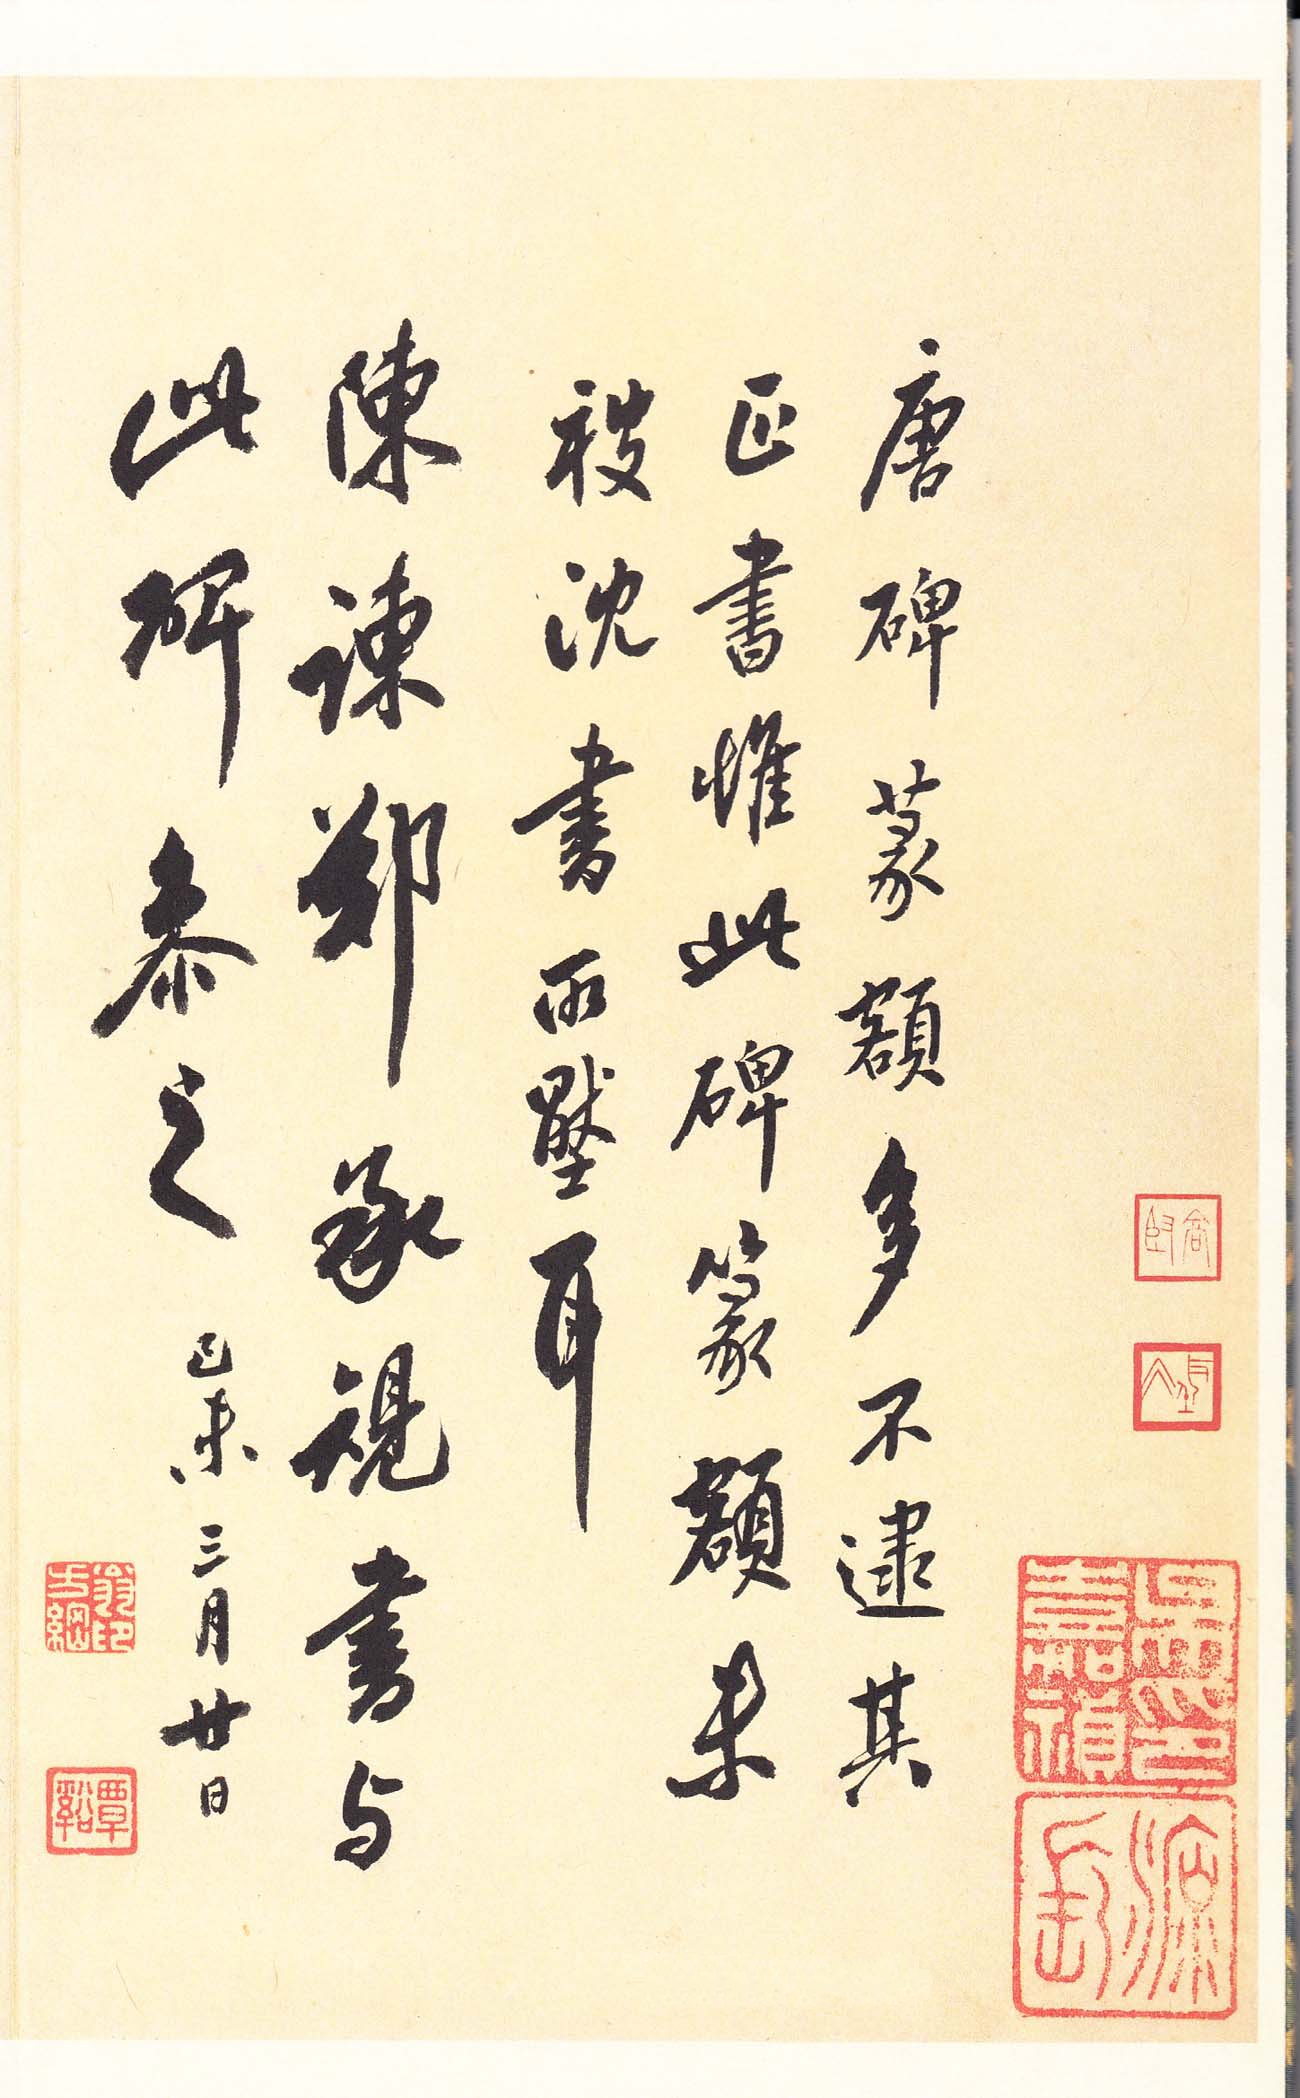 唐碑篆額多不逮其
正書惟此碑篆額未
被沈書所壓耳
陳諫鄭承規書与
此碑叅之
己未三月廿日
翁方綱印
覃谿